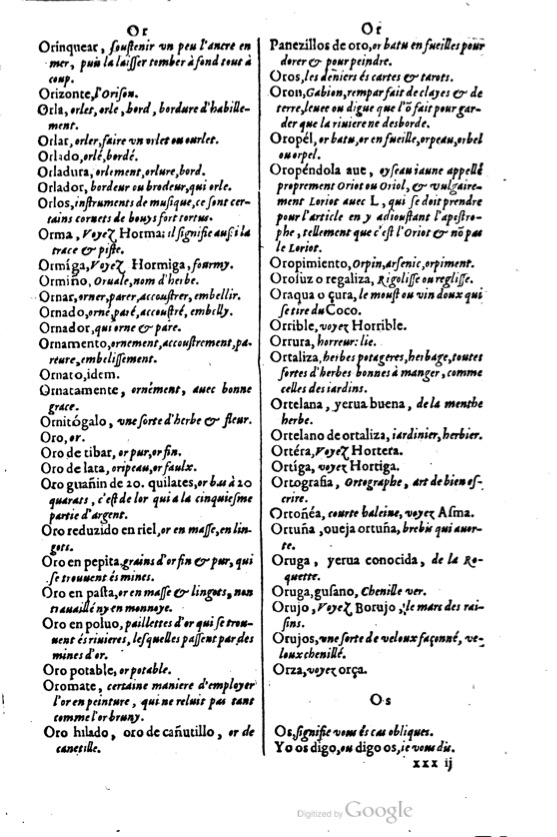 Or
Orinquear, ſouſtenir vn peu l'ancre en
mer, puis la laiſſer tomber à fond tout à
coup.
Orizonte, l'Oriſon.
Orla, orlet, orle, bord, bordure d'habille-
ment.
Orlar, orler, faire vn orlet ou ourlet.
Orlado, orlé, bordé.
Orladura, orlement, orlure, bord.
Orlador, bordeur ou brodeur, qui orle.
Orlos, inſtruments de muſique, ce ſont cer-
tains cornets de bouys fort tortus.
Orma, Voyez Horma: il ſignifie auſsi la
trace & piſte.
Ormíga, Voyez Hormiga, fourmy.
Ormino, Oruale, nom d'herbe.
Ornar, orner, parer, accouſtrer, embellir.
Ornado, orné, paré, accouſtré, embelly.
Ornador, qui orne & pare.
Ornamento, ornement, accouſtrement, pa-
reure, embeliſſement.
Ornato, idem.
Ornatamente, ornément, auec bonne
grace.
Ornitógalo, vne ſorte d'herbe & fleur.
Oro, or.
Oro de tibar, or pur, or fin.
Oro de lata, oripeau, or faulx.
Oro guañin de 20. quilates, or bas à 20
quarats, c'eſt de l'or qui a la cinquieſme
partie d'argent.
Oro reduzido en riel, or en maſſe, en lin-
gots.
Oro en pepita, grains d'or fin & pur, qui
ſe trouuent és mines.
Oro en paſta, or en maſſe & lingots, non
trauaillé ny en monnoye.
Oro en poluo, paillettes d'or qui ſe trou-
uent és riuieres, leſquelles paſſent par des
mines d'or.
Oro potable, or potable.
Oromate, certaine maniere d'employer
l'or en peinture, qui ne reluit pas tant
comme l'or bruny.
Oro hilado, oro de cañutillo, or de
canetille.
Or
Panezillos de oro, or batu en fueilles pour
dorer & pour peindre.
Oros, les deniers és cartes & tarots.
Oron, Gabion, rempar fait de clayes & de
terre, leuee ou digue que l'õ fait pour gar-
der que la riuiere ne desborde.
Oropél, or batu, or en fueille, orpeau, orbel
ou orpel.
Oropéndola aue, oyſeau iaune appellé
proprement Oriot ou Oriol, & vulgaire-
ment Loriot auec L, qui ſe doit prendre
pour l'article en y adiouſtant l'apoſtro-
phe, tellement que c'eſt l'Oriot & nõ pas
le Loriot.
Oropimiento, Orpin, arſenic, orpiment.
Oroſuz o regaliza, Rigoliſſe ou regliſſe.
Oraqua o çura, le mouſt ou vin doux qui
ſe tire du Coco.
Orrible, voyez Horrible.
Orrura, horreur: lie.
Ortaliza, herbes potageres, herbage, toutes
ſortes d'herbes bonnes à manger, comme
celles des iardins.
Ortelana, yerua buena, de la menthe
herbe.
Ortelano de ortaliza, iardinier, herbier.
Ortéra, Voyez Hortera.
Ortíga, voyez Hortiga.
Ortografia, Ortographe, art de bien eſ-
crire.
Ortoñéa, courte baleine, voyez Aſma.
Ortuña, oueja ortuña, brebis qui auor-
te.
Oruga, yerua conocida, de la Ro-
quette.
Oruga, guſano, Chenille ver.
Orujo, Voyez Borujo, le marc des rai-
ſins.
Orujos, vne ſorte de veloux façonné, ve-
loux chenillé.
Orza, voyez orça.
Os
Os, ſignifie vous és cas obliques.
Yo os digo, ou digo os, ie vous dis.
xxx ij
Digitized by Google